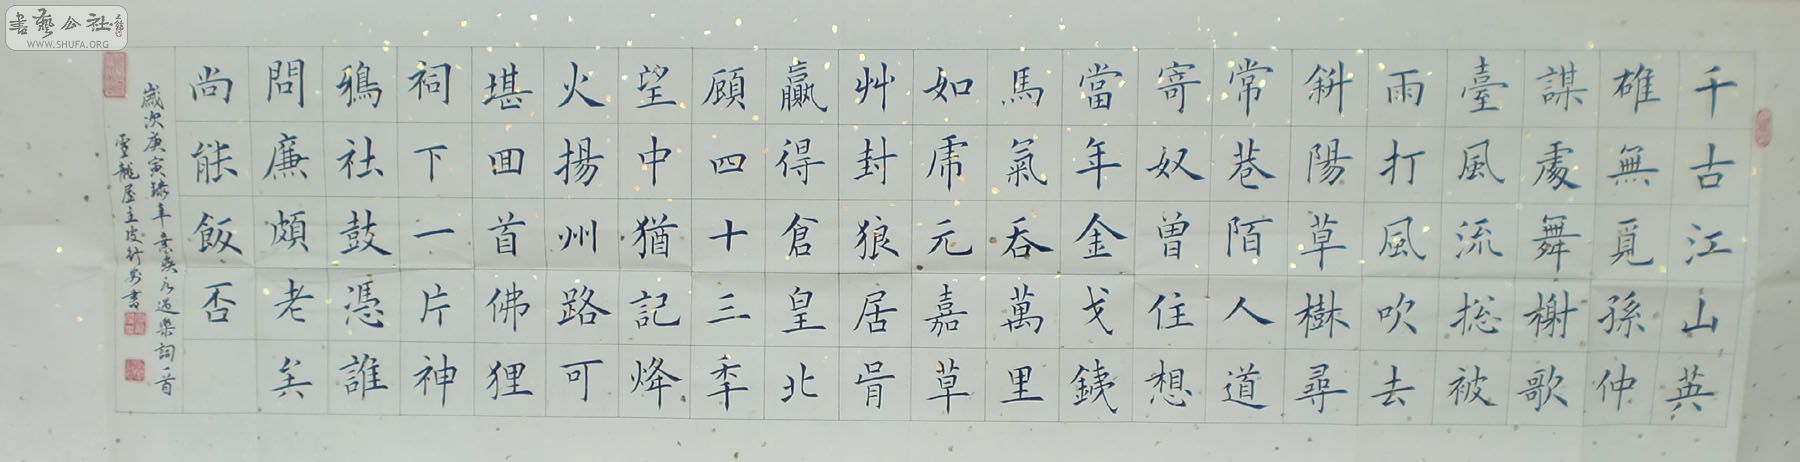 書藝公社
WWW.SHUFA.ORG
千古江山英
雄無覓孫仲
謀處舞榭歌
臺風流総被
雨打風吹去
斜陽草樹尋
常巷陌人道
寄奴曾住想
當年金戈銕
馬氣吞萬里
如虎元嘉草
艸封狼居胥
贏得倉皇北
顧四十三秊
望中猶記烽
火揚州路可
堪回首佛狸
祠下一片神
鴉社鼓憑誰
問廉頗老矣
尚能飯否
歲次庚寅辛棄疾永遇樂詞一首
屋主書